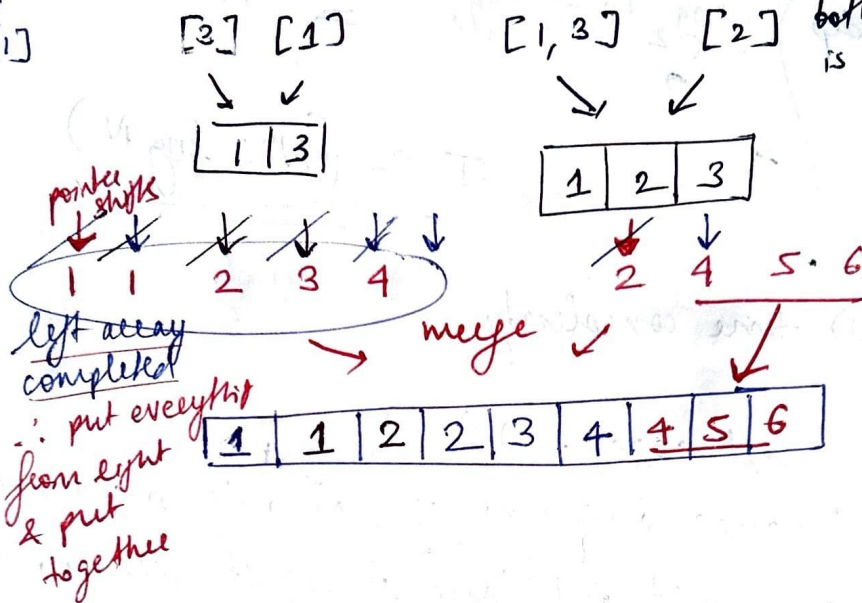 1]
[3] [1]
[1, 3] [2]
is
1 3
1 2 3
pointer
shifts
1 1 2 3 4
2 4 5. 6
left array
completed
merge
∴ put everything
from right
& put
together
1 1 2 2 3 4 4 5 6